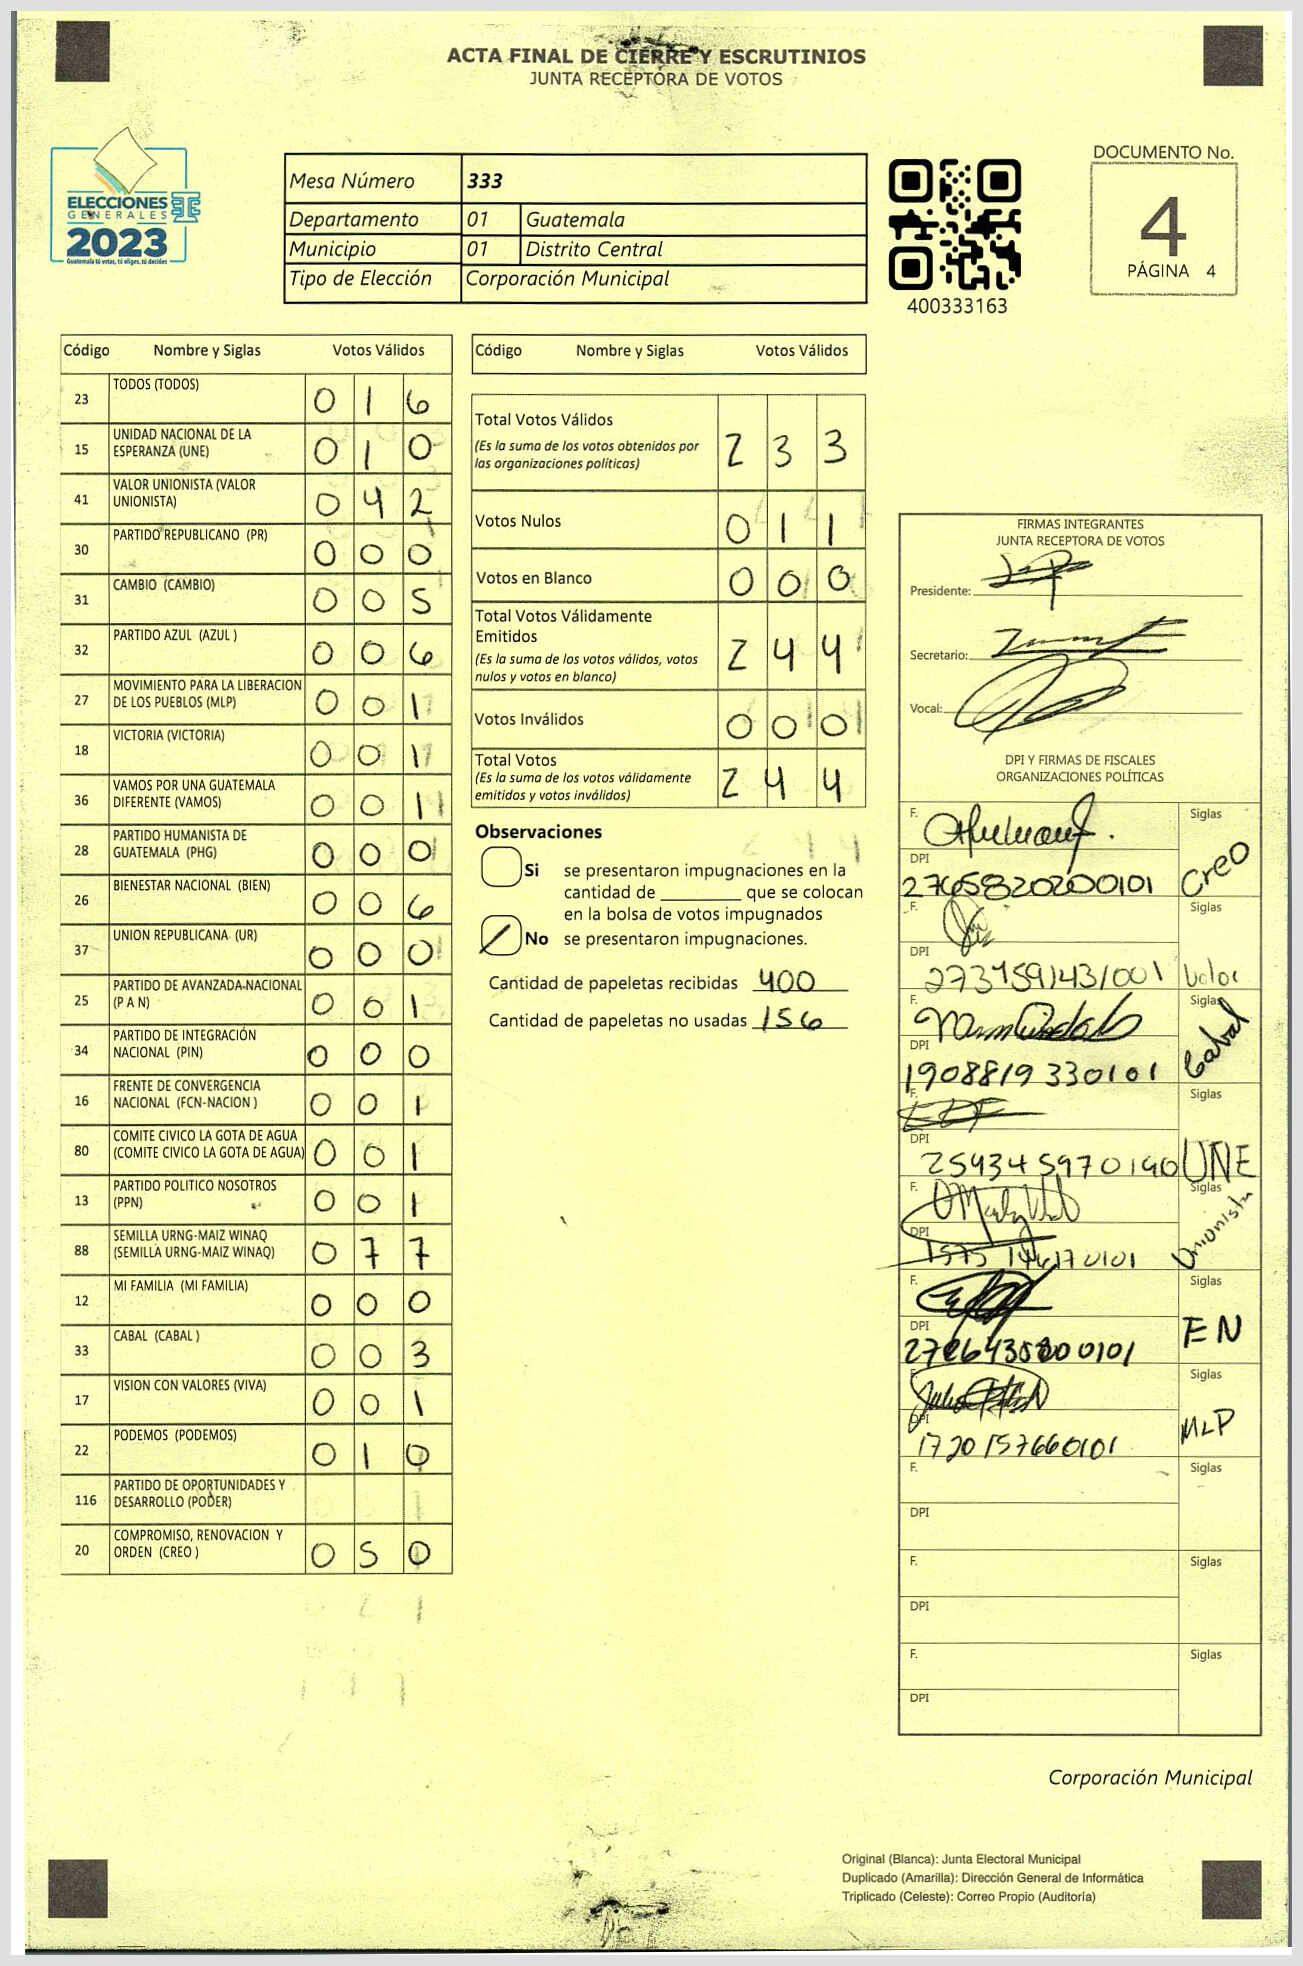 ACTA FINAL DE CIERRE Y ESCRUTINIOS
JUNTA RECEPTORA DE VOTOS
ELECCIONES
GENERALES
2023
Guatemala tú votas, tú eliges, tú decides
Mesa Número 333
Departamento 01 Guatemala
Municipio 01 Distrito Central
Tipo de Elección Corporación Municipal
400333163
DOCUMENTO No.
4
PÁGINA 4
Código Nombre y Siglas Votos Válidos
23 TODOS (TODOS) 0 1 6
15 UNIDAD NACIONAL DE LA ESPERANZA (UNE) 0 1 0
41 VALOR UNIONISTA (VALOR UNIONISTA) 0 4 2
30 PARTIDO REPUBLICANO (PR) 0 0 0
31 CAMBIO (CAMBIO) 0 0 5
32 PARTIDO AZUL (AZUL ) 0 0 6
27 MOVIMIENTO PARA LA LIBERACION DE LOS PUEBLOS (MLP) 0 0 1
18 VICTORIA (VICTORIA) 0 0 1
36 VAMOS POR UNA GUATEMALA DIFERENTE (VAMOS) 0 0 1
28 PARTIDO HUMANISTA DE GUATEMALA (PHG) 0 0 0
26 BIENESTAR NACIONAL (BIEN) 0 0 6
37 UNION REPUBLICANA (UR) 0 0 0
25 PARTIDO DE AVANZADA NACIONAL (P A N) 0 0 1
34 PARTIDO DE INTEGRACIÓN NACIONAL (PIN) 0 0 0
16 FRENTE DE CONVERGENCIA NACIONAL (FCN-NACION ) 0 0 1
80 COMITE CIVICO LA GOTA DE AGUA (COMITE CIVICO LA GOTA DE AGUA) 0 0 1
13 PARTIDO POLITICO NOSOTROS (PPN) 0 0 1
88 SEMILLA URNG-MAIZ WINAQ (SEMILLA URNG-MAIZ WINAQ) 0 7 7
12 MI FAMILIA (MI FAMILIA) 0 0 0
33 CABAL (CABAL ) 0 0 3
17 VISION CON VALORES (VIVA) 0 0 1
22 PODEMOS (PODEMOS) 0 1 0
116 PARTIDO DE OPORTUNIDADES Y DESARROLLO (PODER)
20 COMPROMISO, RENOVACION Y ORDEN (CREO ) 0 5 0
Código Nombre y Siglas Votos Válidos
Total Votos Válidos 2 3 3
(Es la suma de los votos obtenidos por
las organizaciones políticas)
Votos Nulos 0 1 1
Votos en Blanco 0 0 0
Total Votos Válidamente
Emitidos 2 4 4
(Es la suma de los votos válidos, votos
nulos y votos en blanco)
Votos Inválidos 0 0 0
Total Votos 2 4 4
(Es la suma de los votos válidamente
emitidos y votos inválidos)
Observaciones
Si se presentaron impugnaciones en la
cantidad de ________ que se colocan
en la bolsa de votos impugnados
No se presentaron impugnaciones.
Cantidad de papeletas recibidas 400
Cantidad de papeletas no usadas 156
FIRMAS INTEGRANTES
JUNTA RECEPTORA DE VOTOS
Presidente:
Secretario:
Vocal:
DPI Y FIRMAS DE FISCALES
ORGANIZACIONES POLÍTICAS
F. Siglas
DPI Creo
2765820200101
F. Siglas
DPI Valor
F. Siglas
DPI Cabal
1908819 330101
F. Siglas
DPI UNE
259345970190
F. Siglas
DPI Unionista
F. Siglas
DPI EN
F. Siglas
DPI MLP
1720157660101
F. Siglas
DPI
F. Siglas
DPI
F. Siglas
DPI
Corporación Municipal
Original (Blanca): Junta Electoral Municipal
Duplicado (Amarilla): Dirección General de Informática
Triplicado (Celeste): Correo Propio (Auditoría)